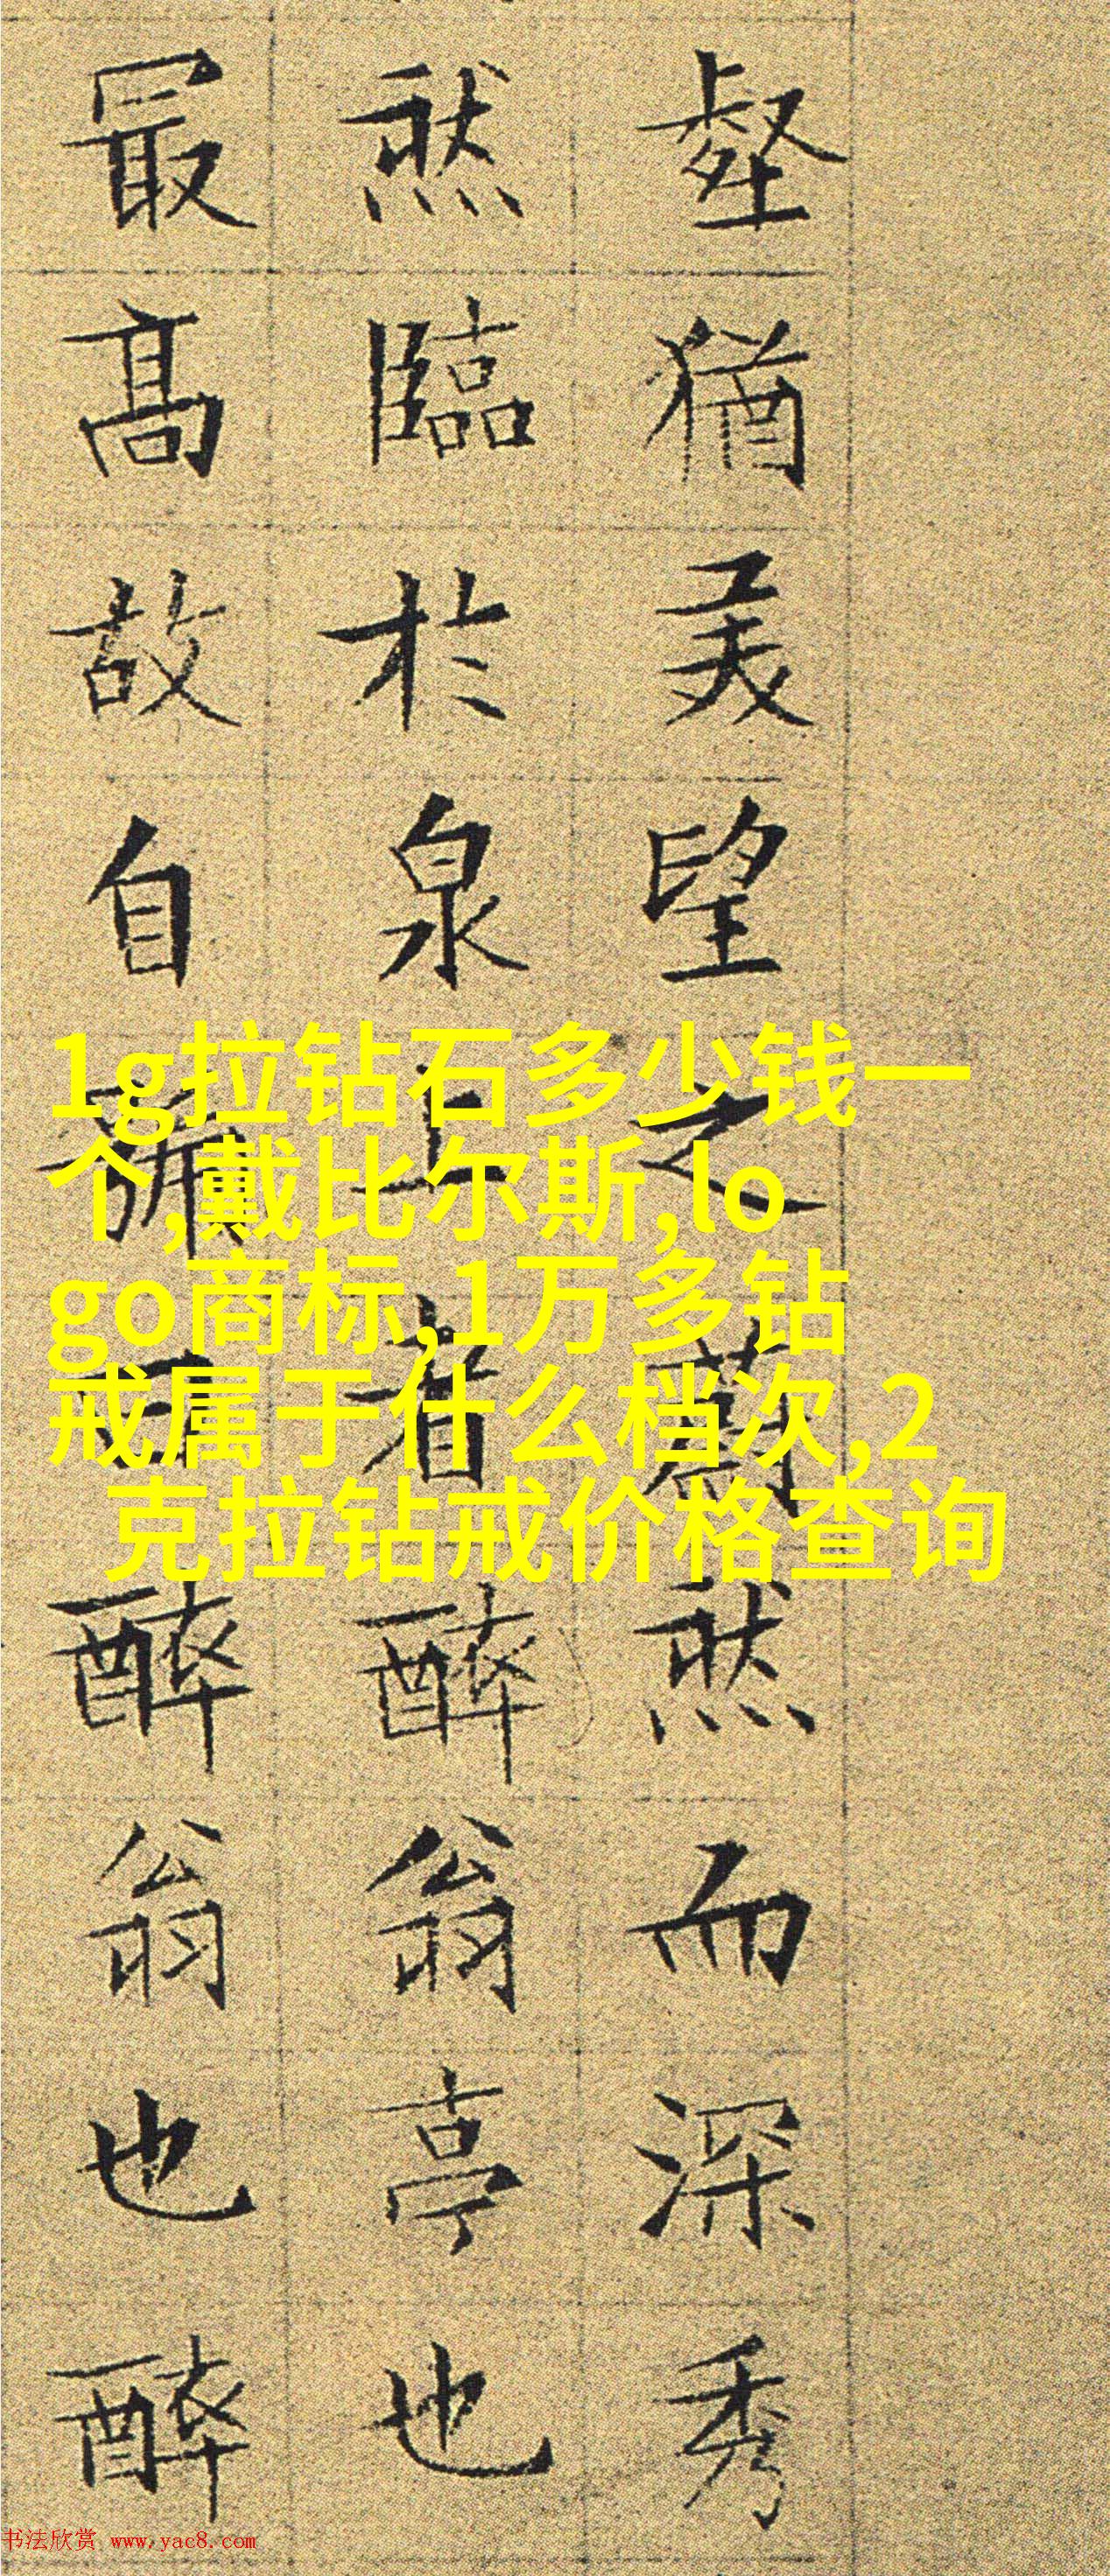 壑猶美望之蔚然而深秀
然臨於泉上者醉翁亭也
最高故自號曰醉翁也醉
1g拉钻石多少钱一
个,戴比尔斯,lo
go商标,1万多钻
戒属于什么档次,2
克拉钻戒价格查询
书法欣赏 www.yac8.com